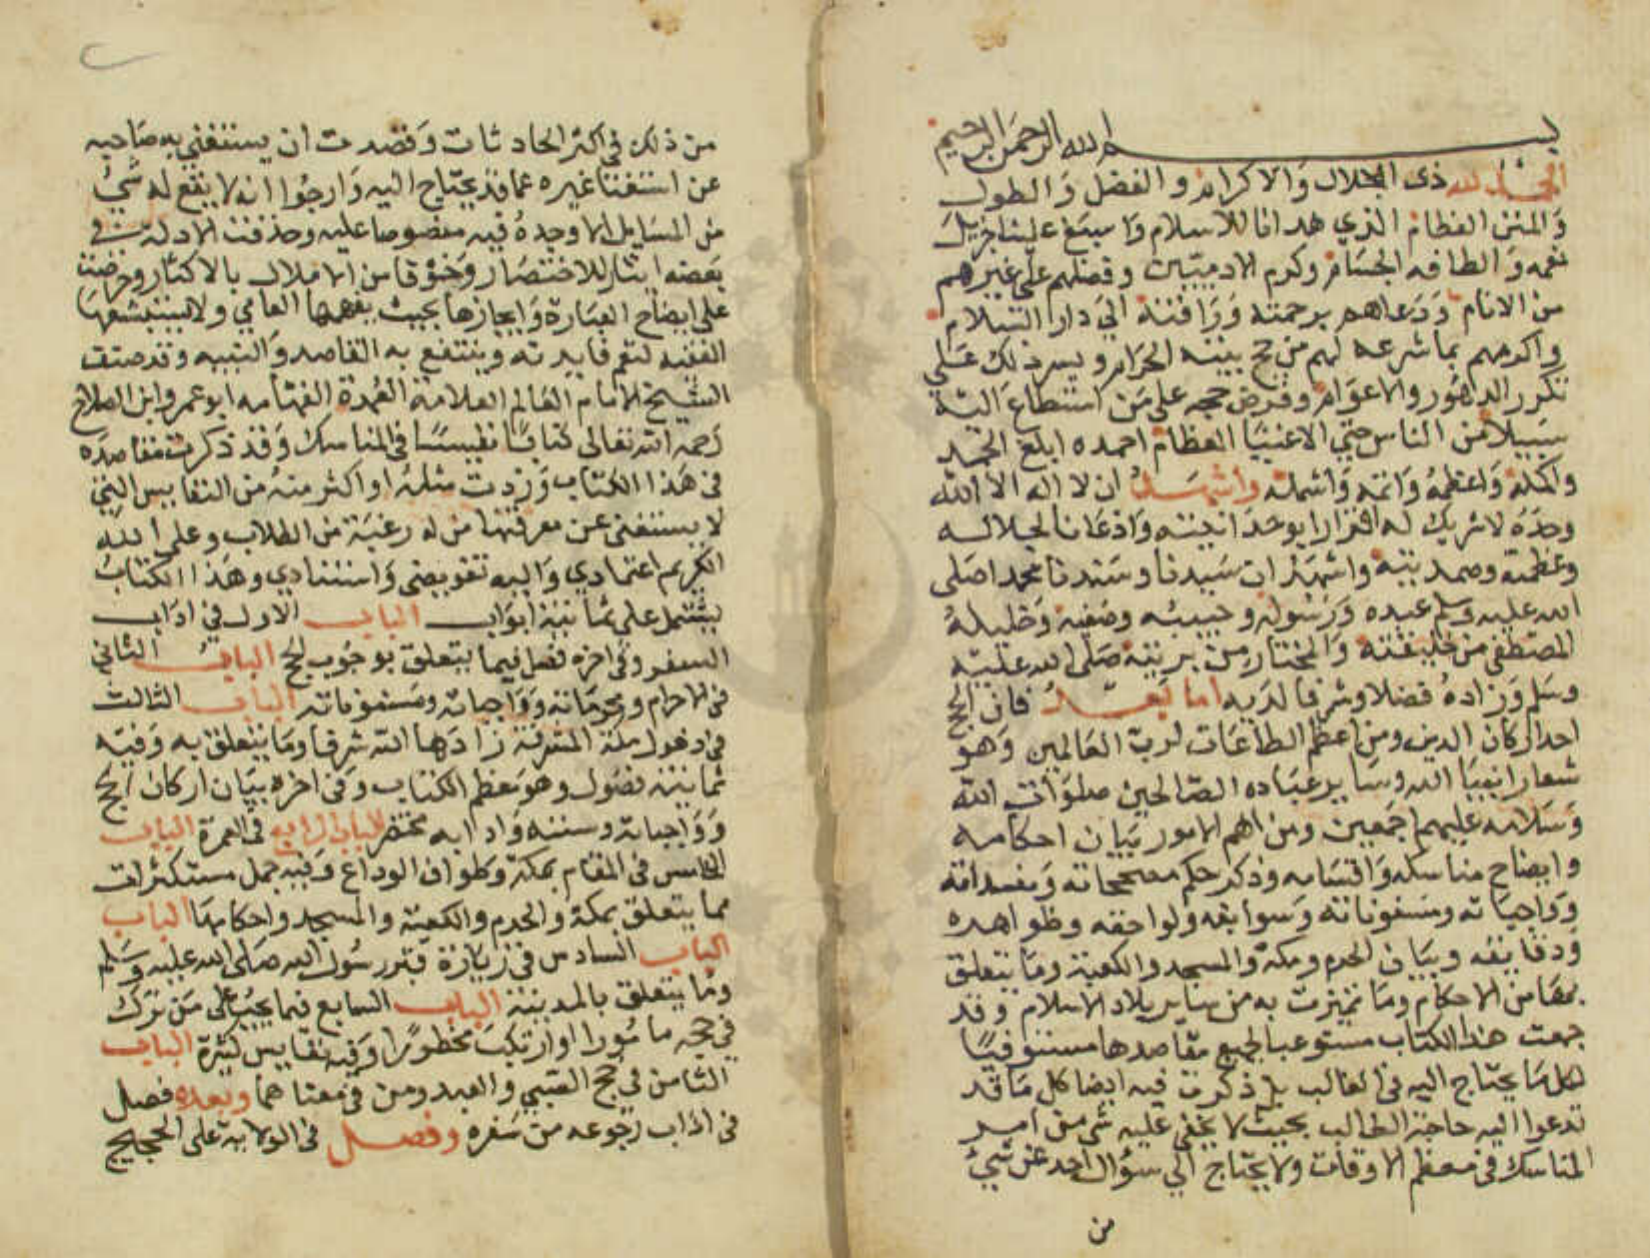 بسم الله الرحمن الرحيم
الحمد لله ذى الجلال والاكرام والفضل والطول
والمنن العظام الذي هدانا للاسلام واسبغ علينا جزيل
نعمه والطافه الجسام وكرم الادميين وفضلهم على غيرهم
من الانام ودعاهم برحمته ورافته الى دار السلام
واكرمهم بما شرعه لهم من حج بيته الحرام ويسر ذلك على
تكرر الدهور والاعوام وفرض حجه على من استطاع اليه
سبيلا من الناس حتي الاغبيا الطغام احمده ابلغ الحمد
واكمله واعظمه واتمه واشمله واشهد ان لا اله الا الله
وحده لا شريك له اقرارا بوحدانيته واذعانا لجلاله
وعظمته وصمديته واشهد ان سيدنا وسندنا محمدا صلى
الله عليه وسلم عبده ورسوله وحبيبه وصفيه وخليله
المصطفى من خليقته والمختار من بريته صلى الله عليه
وسلم وزاده فضلا وشرفا لديه اما بعد فان الحج
احد اركان الدين ومن اعظم الطاعات لرب العالمين وهو
شعار انبيا الله وساير عباده الصالحين صلوات الله
وسلامه عليهم اجمعين ومن اهم الامور بيان احكامه
وايضاح مناسكه واقسامه وذكر حكم مصححاته ومفسداته
وواجباته ومسنوناته وسوابقه ولواحقه وظواهره
ودقايقه وبيان الحرم ومكة والمسجد والكعبة وما يتعلق
بها من الاحكام وما تميزت به من ساير بلاد الاسلام وقد
جمعت هذا الكتاب مستوعبا لجميع مقاصدها مستوفيا
لكل ما يحتاج اليه فى الغالب بل ذكرت فيه ايضا كل ما قد
تدعوا اليه حاجة الطالب بحيث لا يخفى عليه شى من امر
المناسك فى معظم الاوقات ولا يحتاج الي سؤال احد عن شيء
من
من ذلك فى اكثر الحادثات وقصدت ان يستغني به صاحبه
عن استفتا غيره عما قد يحتاج اليه وارجوا انه لا يقع له شيء
من المسايل الا وجده فيه منصوصا عليه وحذفت الادلة فى
بعضه ايثارا للاختصار وخوفا من الاملال بالاكثار وحرصت
على ايضاح العبارة وايجازها بحيث يفهمها العامي ولا يستبشعها
الفقيه لتعم فايدته وينتفع به القاصد والنبيه وقد صنف
الشيخ الامام العالم العلامة العمدة الفهامه ابو عمرو ابن الصلاح
رحمه الله تعالى كتابا نفيسا فى المناسك وقد ذكرت مقاصده
فى هذا الكتاب وزدت مثله او اكثر منه من النفايس التي
لا يستغنى عن معرفتها من له رغبة من الطلاب وعلى الله
الكريم اعتمادي واليه تفويضى واستنادي وهذا الكتاب
يشتمل على ثمانية ابواب الباب الاول في اداب
السفر وفى اخره فصل فيما يتعلق بوجوب الحج الباب الثانى
فى الاحرام ومحرماته وواجباته ومسنوناته الباب الثالث
فى دخول مكة المشرفة زادها الله شرفا وما يتعلق به وفيه
ثمانية فصول وهو معظم الكتاب وفى اخره بيان اركان الحج
وواجباته وسننه وادابه مختصر الباب الرابع فى العمرة الباب
الخامس فى المقام بمكة وطواف الوداع وفيه جمل مستكثرات
مما يتعلق بمكة والحرم والكعبة والمسجد واحكامها الباب
الباب السادس فى زيارة قبر رسول الله صلى الله عليه وسلم
وما يتعلق بالمدينة الباب السابع فيما يجب على من ترك
في حجه مامورا او ارتكب محظورا وفيه نفايس كثيرة الباب
الثامن فى حج الصبي والعبد ومن فى معناهما وبعده فصل
فى اداب رجوعه من سفره وفصل فى الولاية على الحجيج